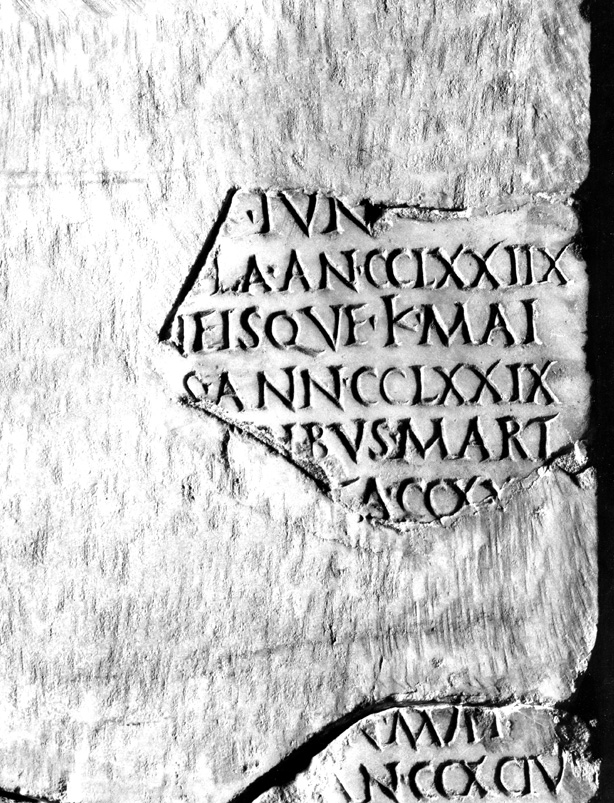 · IVN
LA · AN · CCLXXIIX
IEISQVE · K · MAI
ANN · CCLXXIX
IBVS · MART
N · CCXCIV